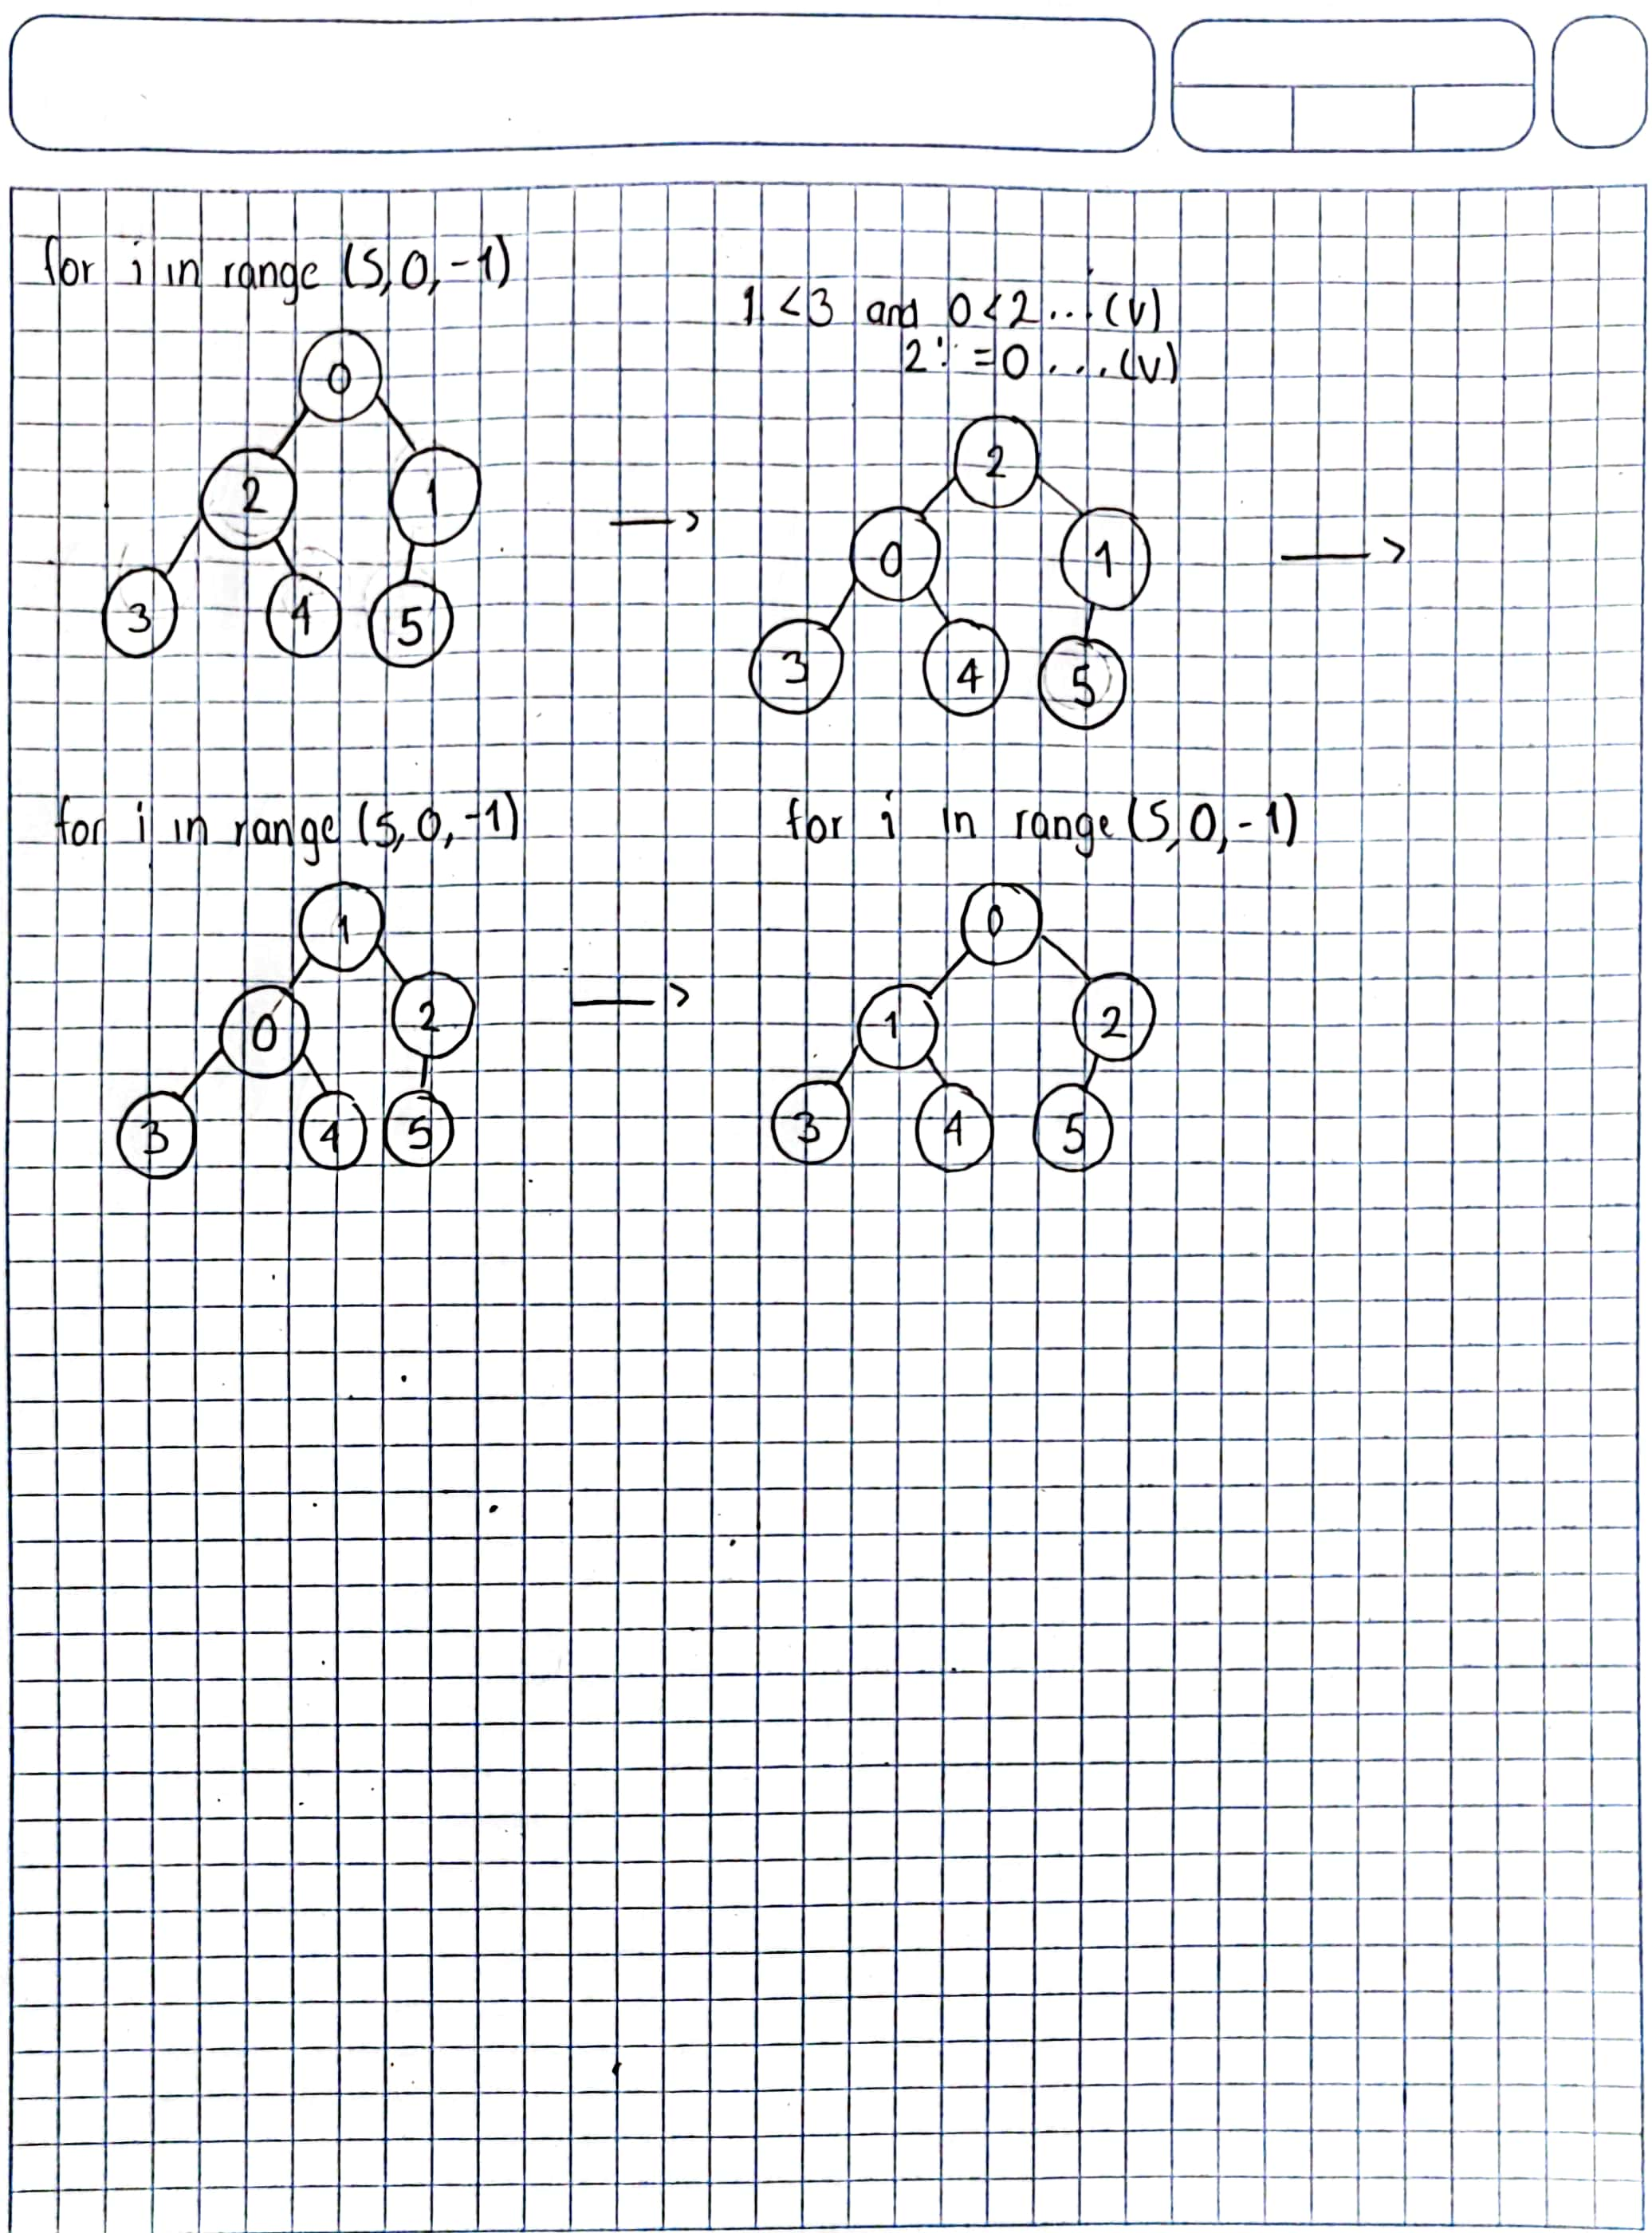 for i in range (5,0,-1)
1<3 and 0<2...(V)
2!=0...(V)
0
2 1
3 4 5
2
0 1
3 4 5
for i in range (5,0,-1)
1
0 2
3 4 5
for i in range (5,0,-1)
0
1 2
3 4 5